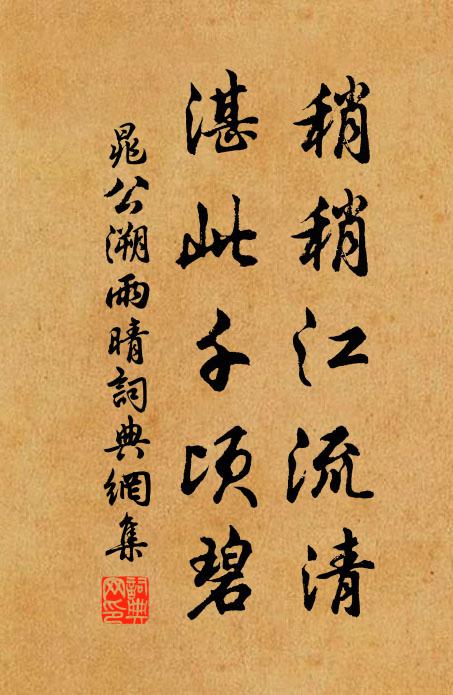 稍稍江流清
湛此千頃碧
晁公溯雨晴詞典網集
詞典網印